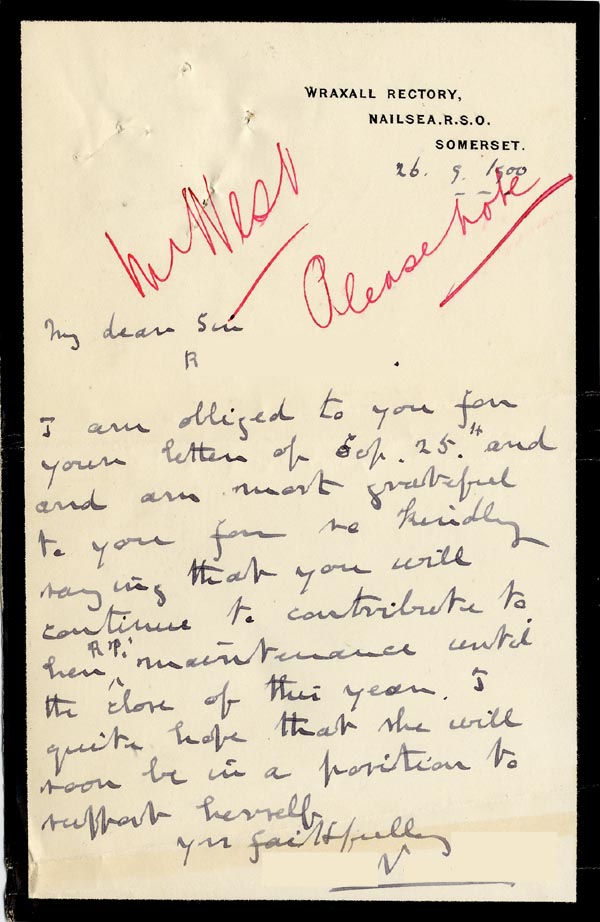 WRAXALL RECTORY,
NAILSEA.R.S.O.
SOMERSET.
26. 9. 1900
Mr West
Please note
My dear Sir
R
I am obliged to you for
your letter of Sep. 25.th and
and am most grateful
to you for so kindly
saying that you will
continue to contribute to
her maintenance until
the close of this year. I
quite hope that she will
soon be in a position to
support herself.
yrs faithfully
V